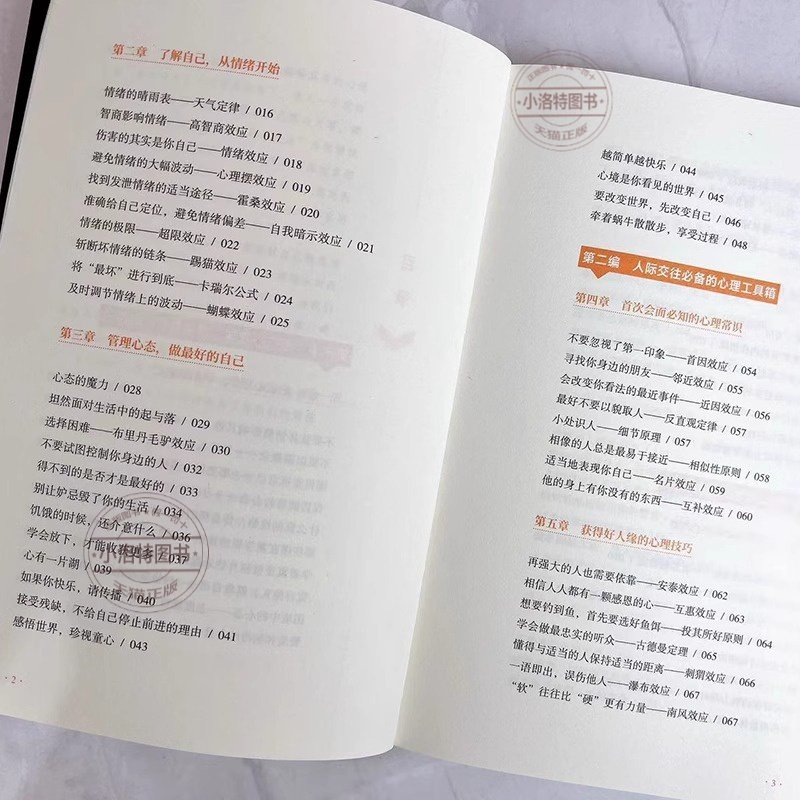 第二章 了解自己，从情绪开始
情绪的晴雨表——天气定律 / 016
智商影响情绪——高智商效应 / 017
伤害的其实是你自己——情绪效应 / 018
避免情绪的大幅波动——心理摆效应 / 019
找到发泄情绪的适当途径——霍桑效应 / 020
准确给自己定位，避免情绪偏差——自我暗示效应 / 021
情绪的极限——超限效应 / 022
斩断坏情绪的链条——踢猫效应 / 023
将“最坏”进行到底——卡瑞尔公式 / 024
及时调节情绪上的波动——蝴蝶效应 / 025
第三章 管理心态，做最好的自己
心态的魔力 / 028
坦然面对生活中的起与落 / 029
选择困难——布里丹毛驴效应 / 030
不要试图控制你身边的人 / 032
得不到的是否才是最好的 / 033
别让妒忌毁了你的生活 / 034
饥饿的时候，还介意什么 / 036
学会放下，才能收获更多 / 037
心有一片湖 / 039
如果你快乐，请传播 / 040
接受残缺，不给自己停止前进的理由 / 041
感悟世界，珍视童心 / 043
· 2 ·
小洛特图书
天猫正版
越简单越快乐 / 044
心境是你看见的世界 / 045
要改变世界，先改变自己 / 046
牵着蜗牛散散步，享受过程 / 048
第二编 人际交往必备的心理工具箱
第四章 首次会面必知的心理常识
不要忽视了第一印象——首因效应 / 054
寻找你身边的朋友——邻近效应 / 055
会改变你看法的最近事件——近因效应 / 056
最好不要以貌取人——反直观定律 / 057
小处识人——细节原理 / 057
相像的人总是最易于接近——相似性原则 / 058
适当地表现你自己——名片效应 / 059
他的身上有你没有的东西——互补效应 / 060
第五章 获得好人缘的心理技巧
再强大的人也需要依靠——安泰效应 / 062
相信人人都有一颗感恩的心——互惠效应 / 063
想要钓到鱼，首先要选好鱼饵——投其所好原则 / 064
学会做最忠实的听众——古德曼定理 / 065
懂得与适当的人保持适当的距离——刺猬效应 / 066
一语即出，误伤他人——瀑布效应 / 067
“软”往往比“硬”更有力量——南风效应 / 067
· 3 ·
小洛特图书
天猫正版